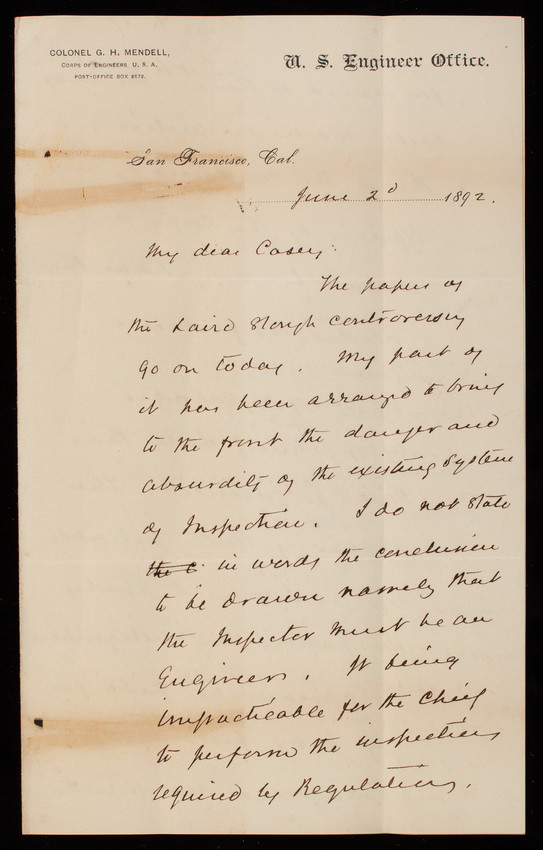 COLONEL G. H. MENDELL,
CORPS OF ENGINEERS, U. S. A.
POST-OFFICE BOX 2572.
U. S. Engineer Office.
San Francisco, Cal.
June 2d 1892.
My dear Casey:
The papers of
the Laird Slough controversy
go on today. My part of
it has been arranged to bring
to the front the danger and
absurdity of the existing system
of Inspection. I do not state
the c in words the conclusion
to be drawn namely that
the Inspector must be an
Engineer. It being
impracticable for the Chief
to perform the inspections
required by Regulations.